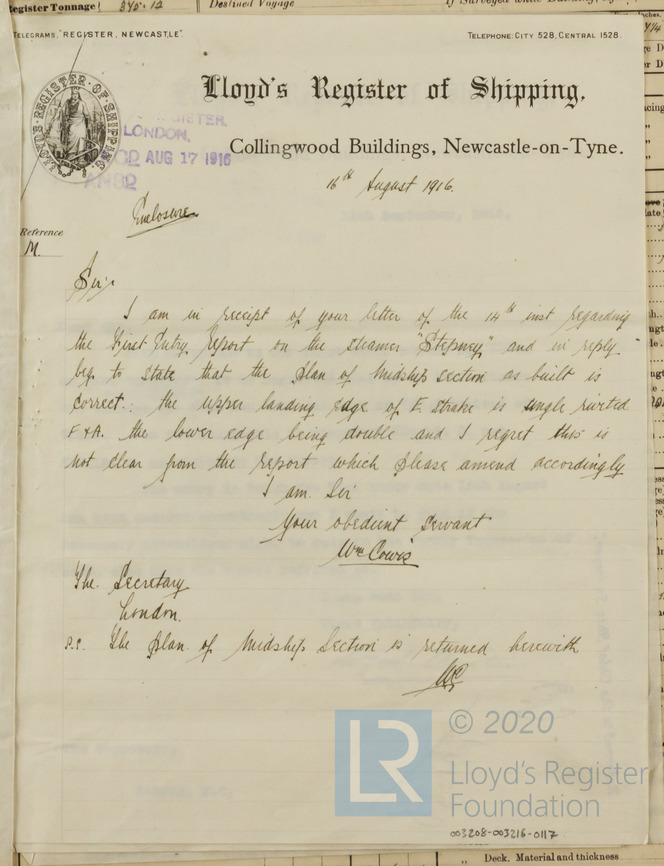 Register Tonnage 345.12
Destined Voyage
If Surveyed while Building,
TELEGRAMS, "REGISTER, NEWCASTLE".
TELEPHONE: CITY 528, CENTRAL 1528.
LLOYD'S REGISTER OF SHIPPING
Lloyd's Register of Shipping.
LONDON,
AUG 17 1916
Collingwood Buildings, Newcastle-on-Tyne.
16th August 1916.
Enclosure
Reference
M.
Sir,
I am in receipt of your letter of the 14th inst regarding
the First Entry Report on the steamer "Stepney" and in reply
beg to state that the plan of Midship section as built is
correct: the upper landing edge of E. strake is single riveted
F & A. the lower edge being double and I regret this is
not clear from the report which please amend accordingly
I am Sir
Your obedient Servant
Wm Cowis
The Secretary
London.
P.S. The plan of Midship Section is returned herewith
WC
LR
© 2020
Lloyd's Register
Foundation
003208-003216-0117
" Deck. Material and thickness